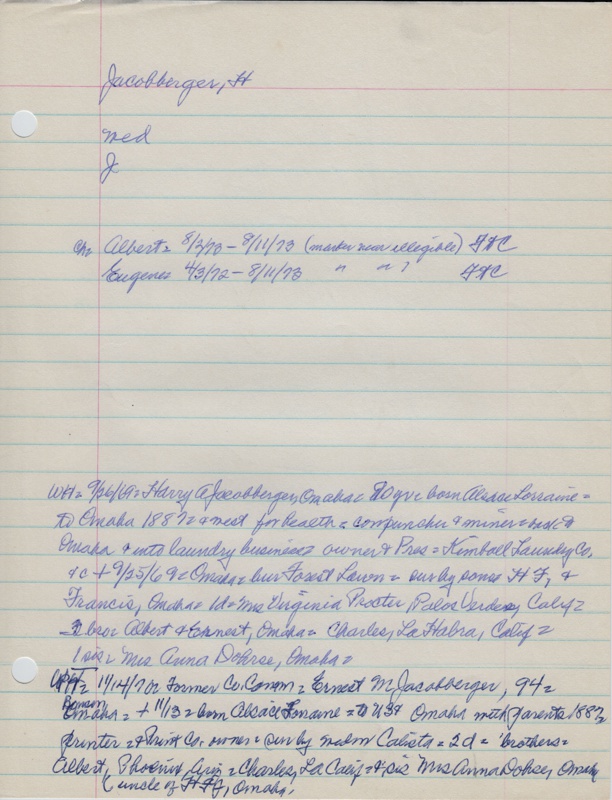 Jacobberger, H
med
J
Ch= Albert= 8/3/73 - 8/11/73 (marker near illegible) FFC
Eugene= 4/3/72 - 8/11/73 " " ? FFC
WH= 9/26/69= Harry A Jacobberger, Omaha= 80 yr= born Alsace Lorraine=
to Omaha 1887= & west for health= cowpuncher & miner= back to
Omaha & into laundry business= owner & Pres= Kimball Laundry Co.
&c + 9/25/69= Omaha= bur Forest Lawn= sur by sons H F, &
Francis, Omaha= 1d= Mrs Virginia Procter, Palos Verdes, Calif=
3 bro= Albert & Ernest, Omaha= Charles, La Habra, Calif=
1 sis= Mrs Anna Dohrse, Omaha=
WH= 11/14/70= Former Co. Comm= Ernest M Jacobberger, 94=
Benson
Omaha= + 11/13= born Alsace Lorraine= to USA Omaha with parents 1887
printer= & Print Co. owner= sur by Calista= 2d= brothers=
Albert, Phoenix, Ariz= Charles, La Calif= & sis Mrs Anna Dohse, Omaha
(uncle of HFJ, Omaha.